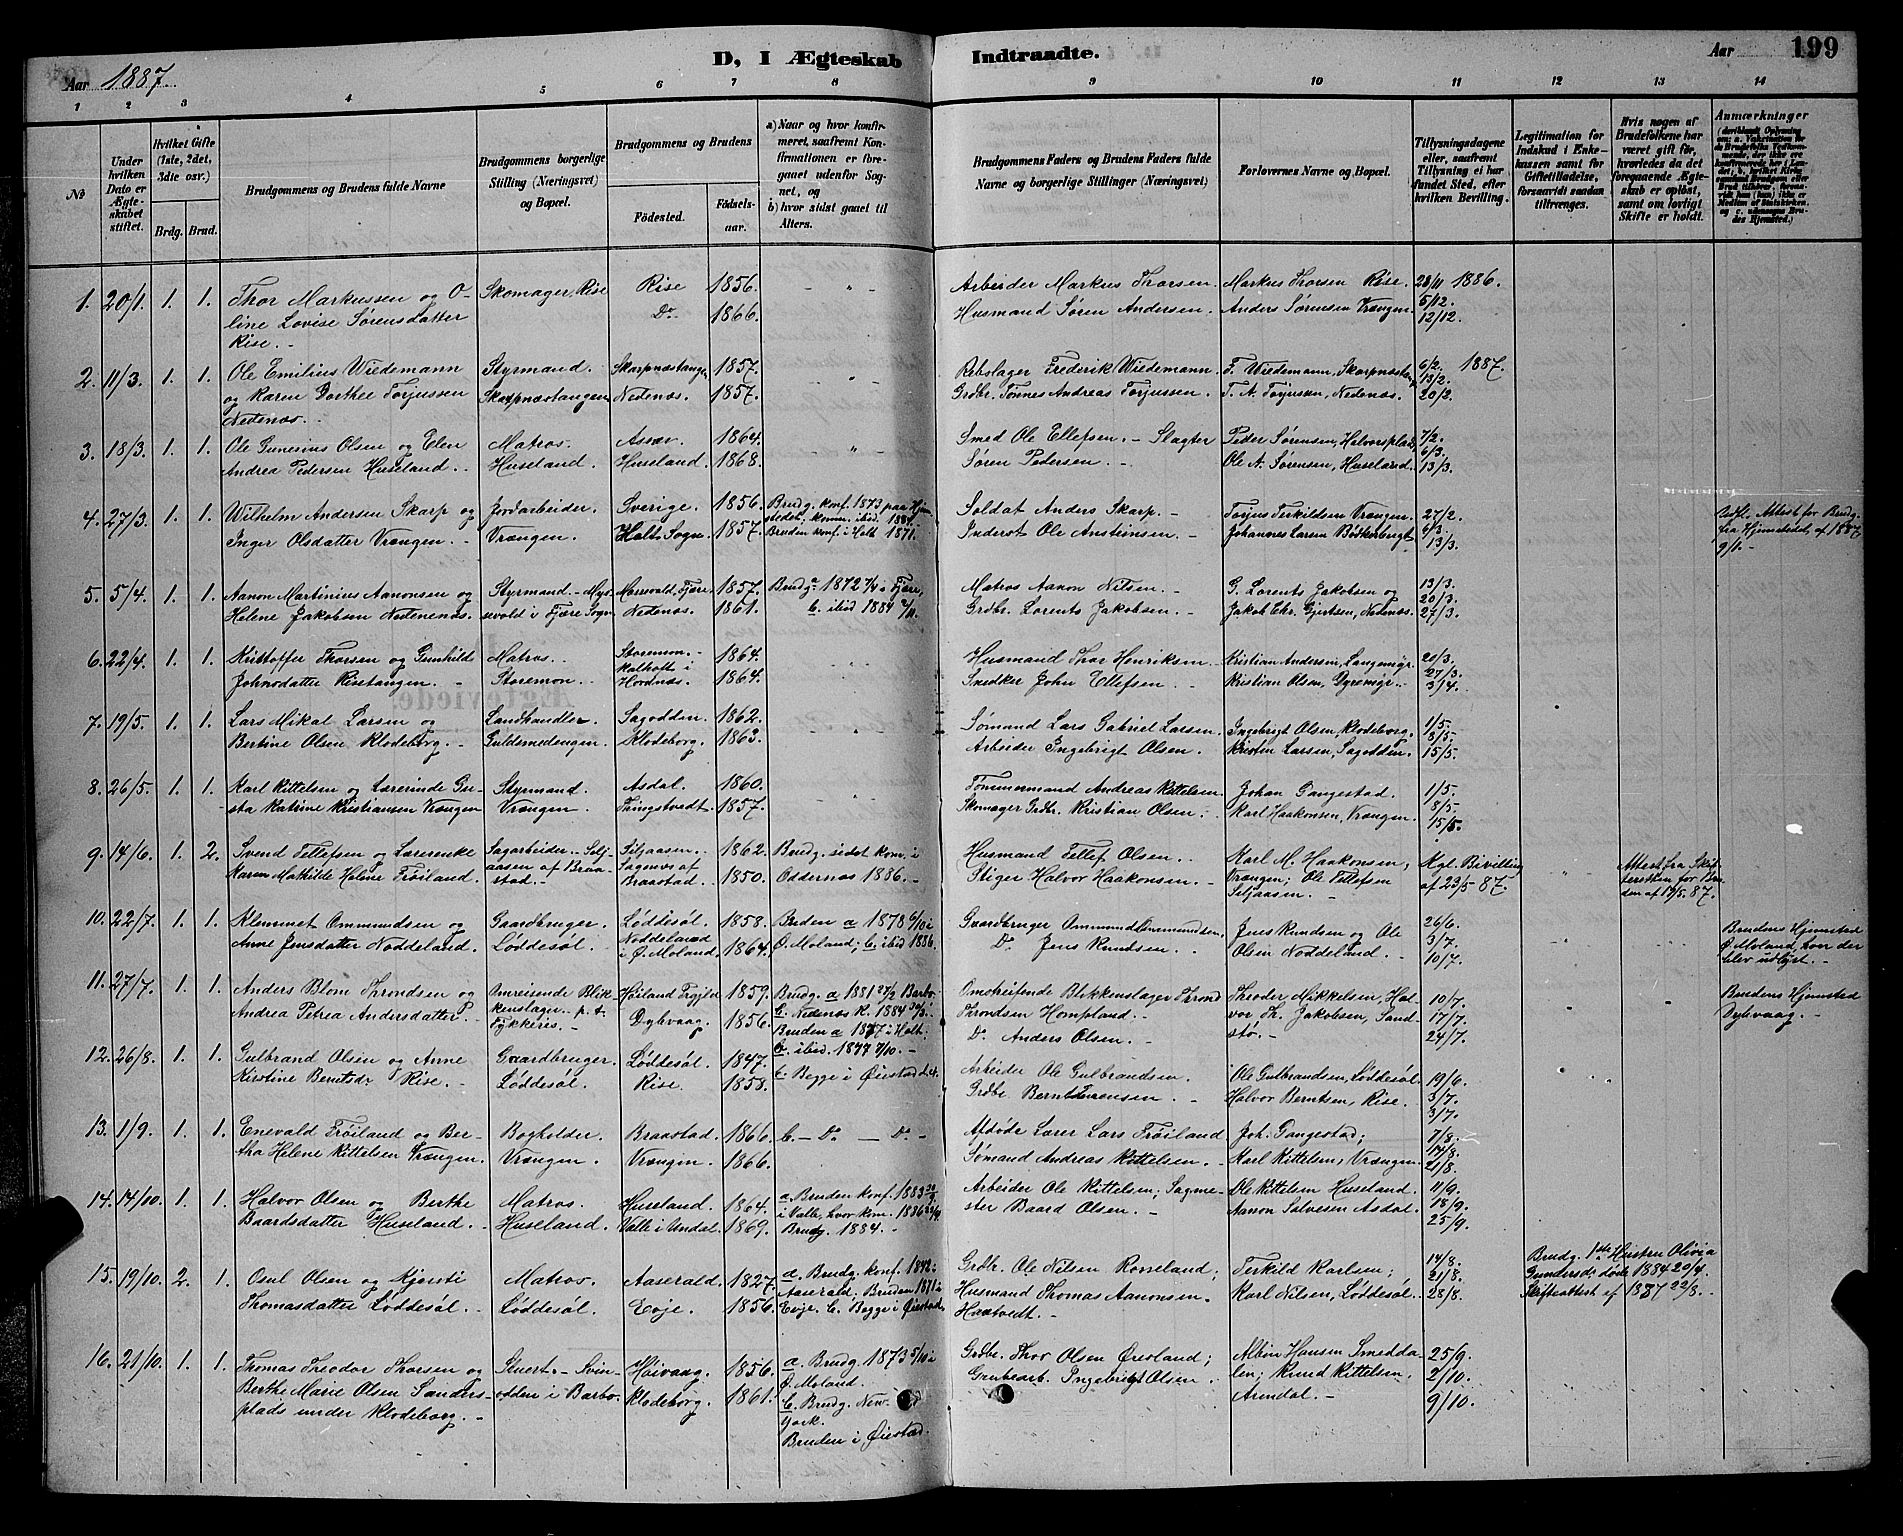 D, I Ægteskab Indtraadte.
Aar 1887. Aar 199
1 2 3 4 5 6 7 8 9 10 11 12 13 14
No
Under hvilken Dato er Ægteskabet stiftet.
Hvilket Gifte (1ste, 2det, 3die osv.)
Brdg. Brud.
Brudgommens og Brudens fulde Navne
Brudgommens borgerlige Stilling (Næringsvei) og Bopæl.
Brudgommens og Brudens
Födested. Födselsaar.
a) Naar og hvor konfirmeret, saafremt Konfirmationen er foregaaet udenfor Sognet, og
b) hvor sidst gaaet til Alters.
Brudgommens Faders og Brudens Faders fulde Navne og borgerlige Stillinger (Næringsvei)
Forlovernes Navne og Bopæl.
Tillysningsdagene eller, saafremt Tillysning ei har fundet Sted, efter hvilken Bevilling.
Legitimation for Indskud i Enkekassen samt for Giftetilladelse, forsaavidt saadan tiltrænges.
Hvis nogen af Brudefolkene har været gift før, hvorledes da det foregaaende Ægteskab er opløst, samt om lovligt Skifte er holdt.
Anmærkninger
1. 20/1. 1. 1. Thor Markussen og O- Skomager, Rise Rise 1856. Arbeider Markus Thorsen. Markus Thorsen Rise. 28/11 1886.
line Lovise Sørensdatter Do 1866. Husmand Søren Andersen. Anders Sørensen Vrængen. 5/12.
Rise. 12/12.
2. 11/3. 1. 1. Ole Emilius Wiedemann Styrmand. Skarpnæstangen 1857. Rebslager Frederik Wiedemann. F. Wiedemann, Skarpnæstang 6/2. 1887.
og Karen Dorthee Torjussen Skarpnæstangen Nedenæs. 1857. Grdbr. Tønnes Andreas Torjussen. T. A. Torjussen, Nedenæs. 13/2.
Nedenæs. 20/2.
3. 18/3. 1. 1. Ole Gunesius Olsen og Elen Matros. Assæv. 1864. Smed Ole Ellefsen. - Slagter Peder Sørensen, Halvorsplad 7/2.
Andrea Pedersen Huseland. Huseland. Huseland. 1868. Søren Pedersen. Ole N. Sørensen, Huseland. 6/3.
13/3.
4. 27/3. 1. 1. Wilhelm Andersen Skarp og Jordarbeider. Sverige. 1856. Brudg. konf. 1873 paa Hjem- Soldat Anders Skarp. Torjus Terkildsen Vrængen. 27/2. Udfl. Attest for Brudg.
Inger Olsdatter Vrængen. Vrængen. Holt Sogn. 1857. stedet, komm. ibid. 1884. Inderst Ole Ansteinsen. Johannes Larsen Bödkerbergt 6/3. fra Hjemstedet af 1887
Bruden konf. i Holt 1871. 13/3. 9/1.
5. 5/4. 1. 1. Aanon Martinius Aanonsen og Styrmand. Mosevold, Fjære 1857. Brudg. a 1872 7/4 i Fjære, Matros Aanon Nilsen. G. Lorents Jakobsen og 13/3.
Helene Jakobsen Nedenenæs. sevold i Fjære Sogn Nedenæs. 1861. b. ibid 1884 2/11. Grdbr. Lorents Jakobsen. Jakob Chr. Gjertsen, Nedenæs. 20/3.
27/3.
6. 22/4. 1. 1. Kristoffer Thorsen og Gunhild Matros. Storemon. 1864. Husmand Thor Henriksen Kristian Andersen, Langemyr. 20/3.
Johnsdatter Risetangen. Storemon. Kalholt i Hordnæs. 1864. Snedker John Ellefsen. Kristian Olsen, Dyremyr. 27/3.
3/4.
7. 19/5. 1. 1. Lars Mikal Larsen og Landhandler. Sagodden. 1862. Sømand Lars Gabriel Larsen Ingebrigt Olsen, Klodeborg. 1/5.
Bertine Olsen Klodeborg. Guldsmedengen. Klodeborg. 1863. Arbeider Ingebrigt Olsen. Kristen Larsen, Sagodden. 8/5.
15/5.
8. 26/5. 1. 1. Karl Kittelsen og Lærerinde Gu- Styrmand. Asdal. 1860. Tömmermand Andreas Kittelsen. Johan Gangestad. 1/5.
sta Katrine Kristiansen Vrængen Vrængen. Tingstvedt. 1857. Skomager Grdbr. Kristian Olsen. Karl Haakonsen, Vrængen. 8/5.
15/5.
9. 14/6. 1. 2. Svend Tellefsen og Lærerenke Sagarbeider. Selj- Seljaasen. 1862. Brudg. sidst kom. i Husmand Tellef Olsen. Karl M. Haakonsen, Kgl. Bevilling Attest fra Skif-
Karen Mathilde Helene Frøiland. aasen af Braa- Sagenes af 1850. Oddernæs 1886. Stiger Halvor Haakonsen. Vrængen; Ole Tellefsen af 23/5 87. teretten for Bru-
stad. Braastad. Seljaasen. den af 17/5. 87.
10. 22/7. 1. 1. Klemmet Ommundsen og Gaardbruger. Løddesøl. 1858. Bruden a 1878 6/10 i Gaardbruger Ommund Ommundsen, Jens Knudsen og Ole 26/6. Brudens Hjemsted
Anne Jensdatter Noddeland. Løddesøl. Noddeland i Ø. Moland. 1864. Ø. Moland; b. ibid 1886. Do Jens Knudsen. Olsen Noddeland. 3/7. Ø. Moland, hvor der
10/7. blev udlyst.
11. 27/7. 1. 1. Anders Blom Throndsen og Omreisende Blik- Høiland 1859. Brudg. a 1881 27/2 Barbo. Omstreifende Blikkenslager Thrond Theodor Mikkelsen, Hal- 10/7. Brudens Hjemsted
Andrea Petrea Andersdatter. kenslager p. t. Dybvaag. 1856. b. Nedenæs K. 1884 Throndsen Hompland. vor Th. Jakobsen, Sand- 17/7. Dybvaag.
Bruden a 1877 i Holt. Do Anders Olsen. stø. 24/7.
b. ibid. 1877 7/10.
12. 26/8. 1. 1. Gulbrand Olsen og Anne Gaardbruger Løddesøl. 1847. b. Begge i Øiestad Arbeider Ole Gulbrandsen. Ole Gulbrandsen, Løddesøl 19/6.
Kirstine Berntsdr Rise. Løddesøl. Rise. 1858. Grdbr. Bernt Sørensen. Halvor Berntsen, Rise. 3/7.
3/7.
13. 1/9. 1. 1. Enevald Frøiland og Ber- Bogholder. Braastad. 1866. b. - Do - Do - Afdøde Lærer Lars Frøiland Joh. Gangestad; 7/8.
tha Helene Kittelsen Vrængen. Vrængen. Vrængen. 1866. Sømand Andreas Kittelsen. Karl Kittelsen, Vrængen 14/8.
21/8.
14. 14/10. 1. 1. Halvor Olsen og Berthe Matros. Huseland. 1864. a. Bruden konf. 1883 Arbeider Ole Kittelsen; Sagme- Ole Kittelsen Huseland. 11/9.
Baardsdatter Huseland. Huseland. Valle i Undal. 1869. i Valle, hvor kom. 1886 ster Baard Olsen. Aanon Salvesen Asdal. 18/9.
Brudg. 1884. 25/9.
15. 19/10. 2. 1. Osul Olsen og Kjersti Matros. Aaserald. 1827. a. Brudg. konf. i Grdbr. Ole Nilsen Rosseland; Terkild Karlsen; 14/8. Brudg. 1ste Hustru Olivia
Thomasdatter Løddesøl. Løddesøl. Evje. 1856. Aaserald; Bruden 1871 i Husmand Thomas Aanonsen Karl Nilsen, Løddesøl. 21/8. Gundersdr døde 1884 20/4.
Evje. b. Begge i Øiestad. Haatvedt. 28/8. Skifteattest af 1887 22/8.
16. 21/10. 1. 1. Thomas Theodor Thorsen og Stuert. Svin- Høivaag. 1856. a. Brudg. 1873 5/10 i Grdbr. Thor Olsen Øiesland; Albin Hansen Smedda- 25/9.
Berthe Marie Olsen Sanders- odden i Barbo. Klodeborg. 1861. Ø. Moland. Grubearb. Ingebrigt Olsen. len; Knud Kittelsen, 2/10.
plads under Klodeborg. b. Brudg. New Arendal. 9/10.
York.
Bruden i Øiestad.